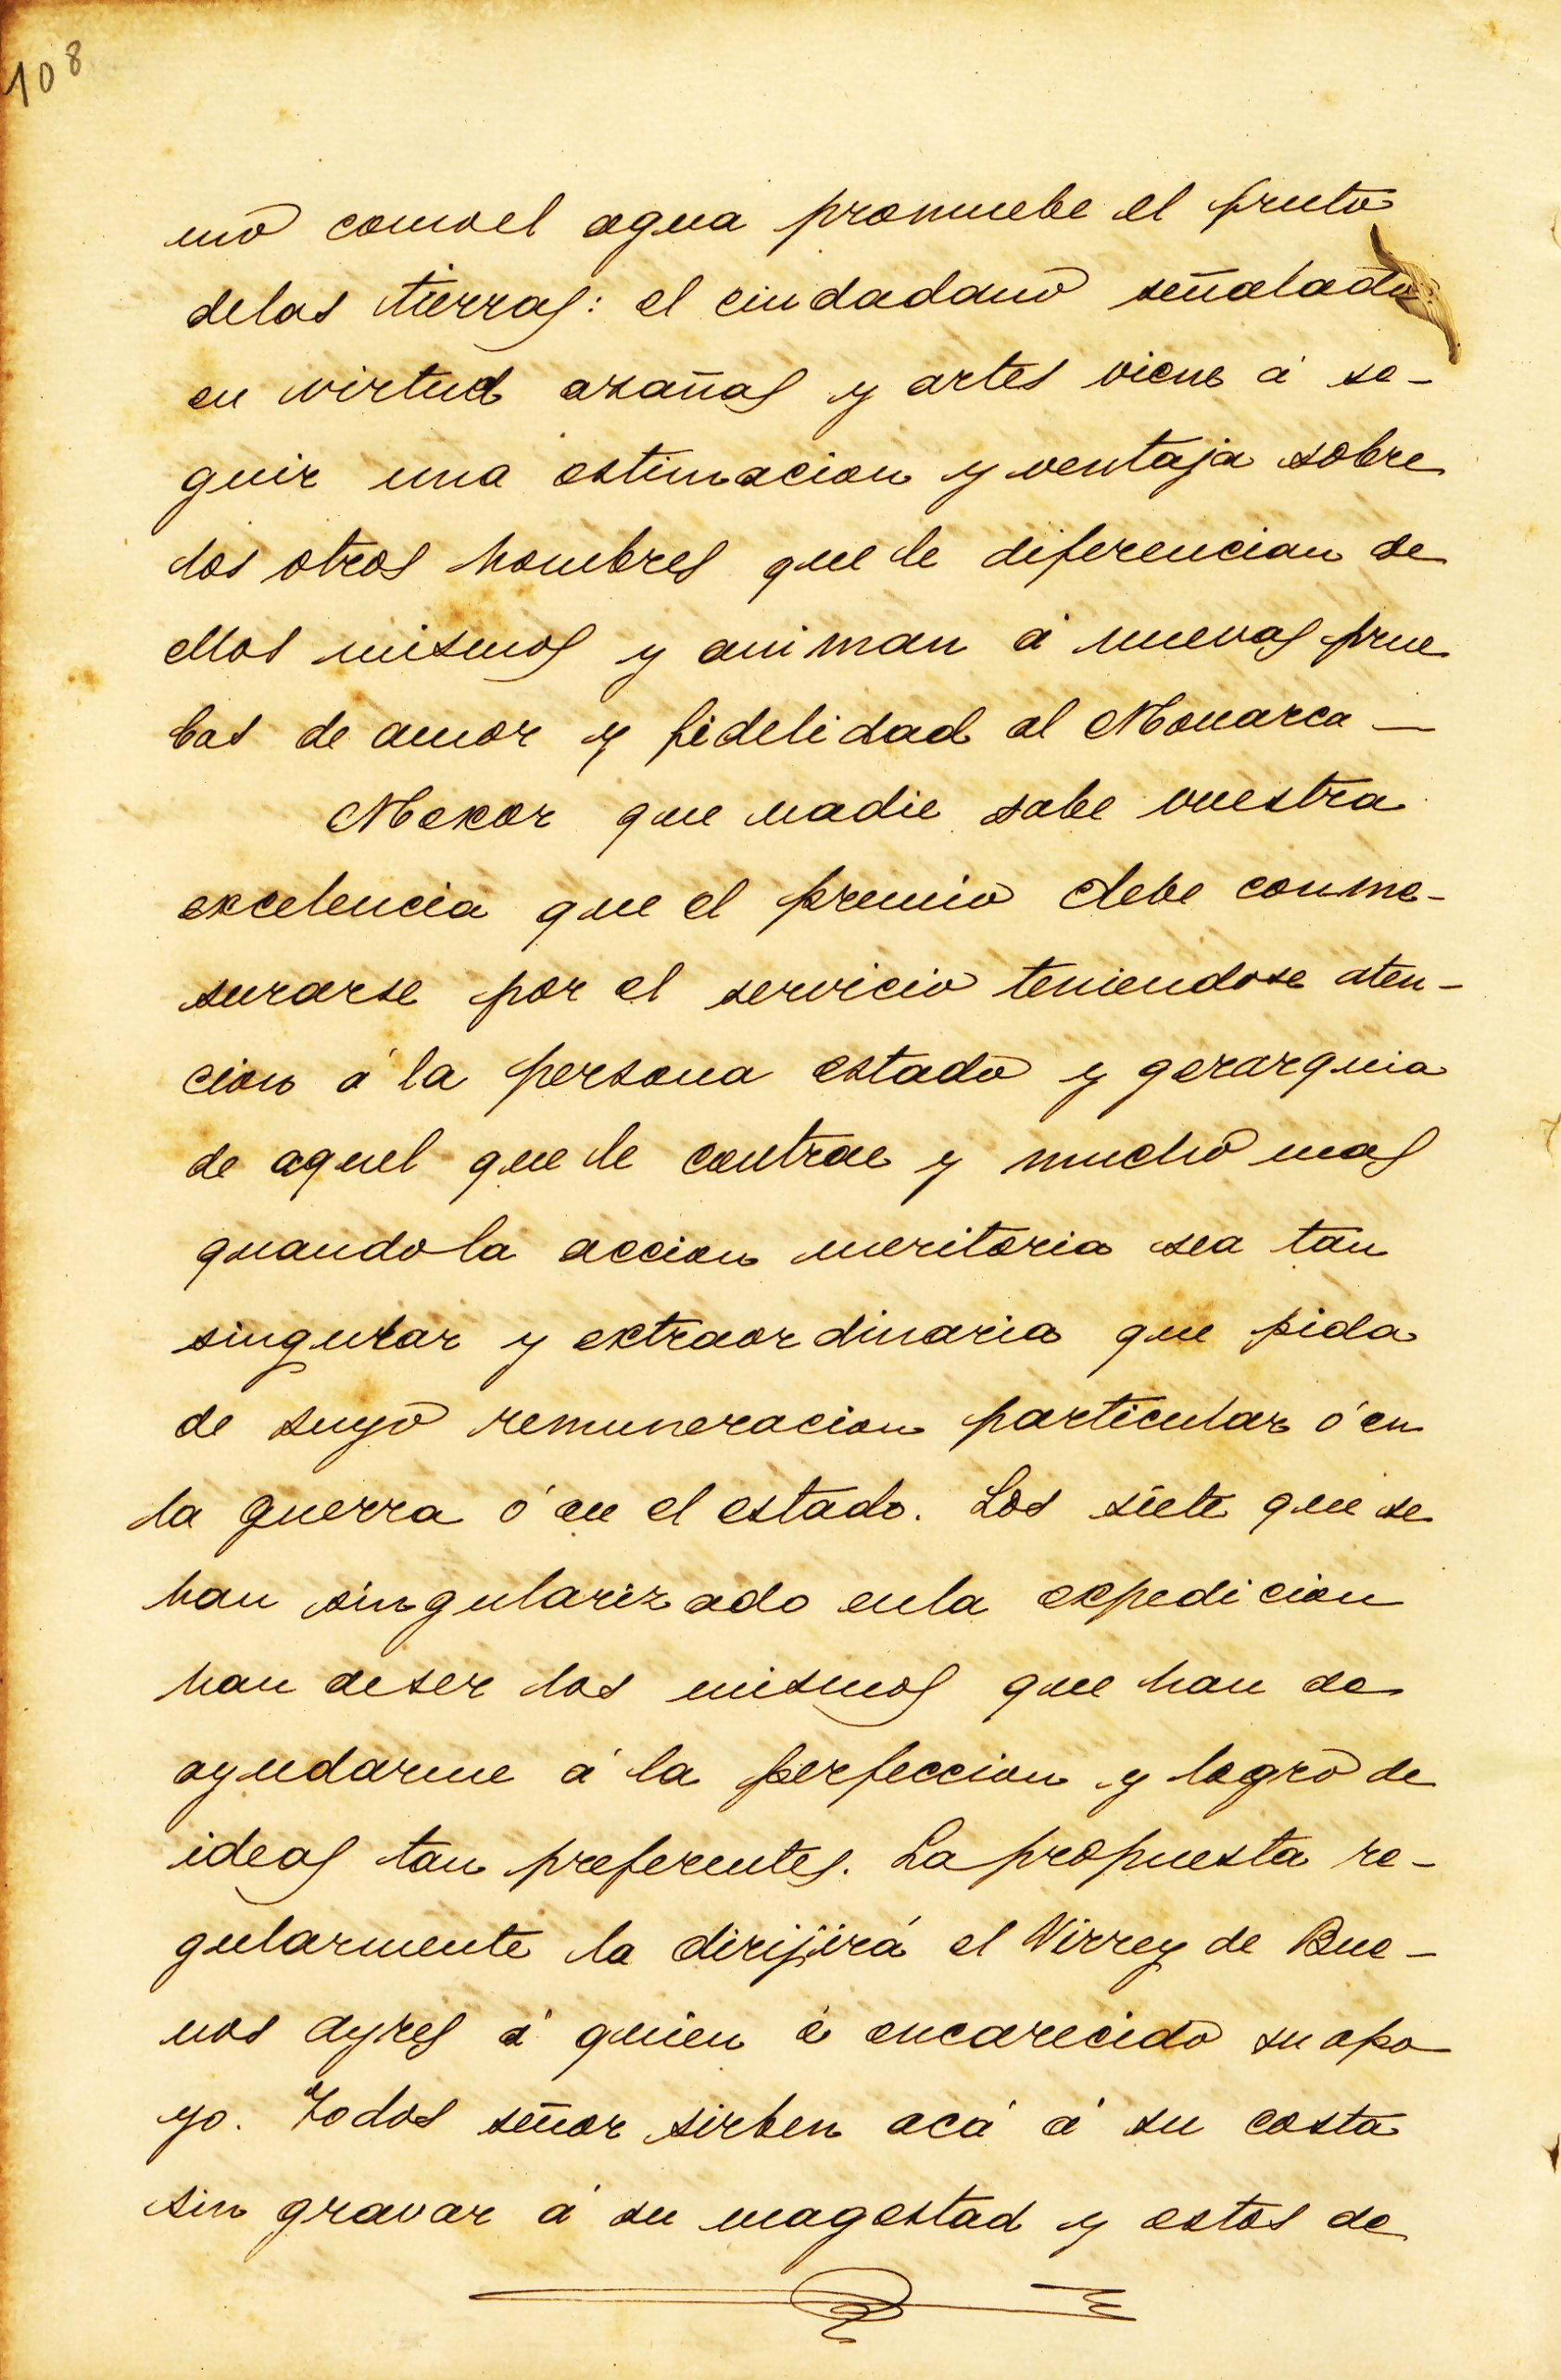 108
mo comoel agua promuebe el fruto
delas tierras: el ciudadano señalado
en virtud azañas y artes viene á se-
guir una estimacion y ventaja sobre
los otros hombres que le diferencian de
ellos mismos y animan á nuevas prue
bas de amor y fidelidad al Monarca —
Mexor que nadie sabe vuestra
excelencia que el premio debe conme-
surarse por el servicio teniendose aten-
cion á la persona estado y gerarquia
de aquel que le contrae y mucho mas
quandola accion meritoria sea tan
singular y extraordinaria que pida
de suyo remuneracion particular ó en
la guerra ó en el estado. Los siete que se
han singularizado enla expedicion
han deser los mismos que han de
ayudarme á la perfeccion y logro de
ideas tan preferentes. La propuesta re-
gularmente la dirijirá el Virrey de Bue-
nos ayres á quien é encarecido su apo
yo. Todos señor sirben acá á su costa
sin gravar á su magestad y estos de